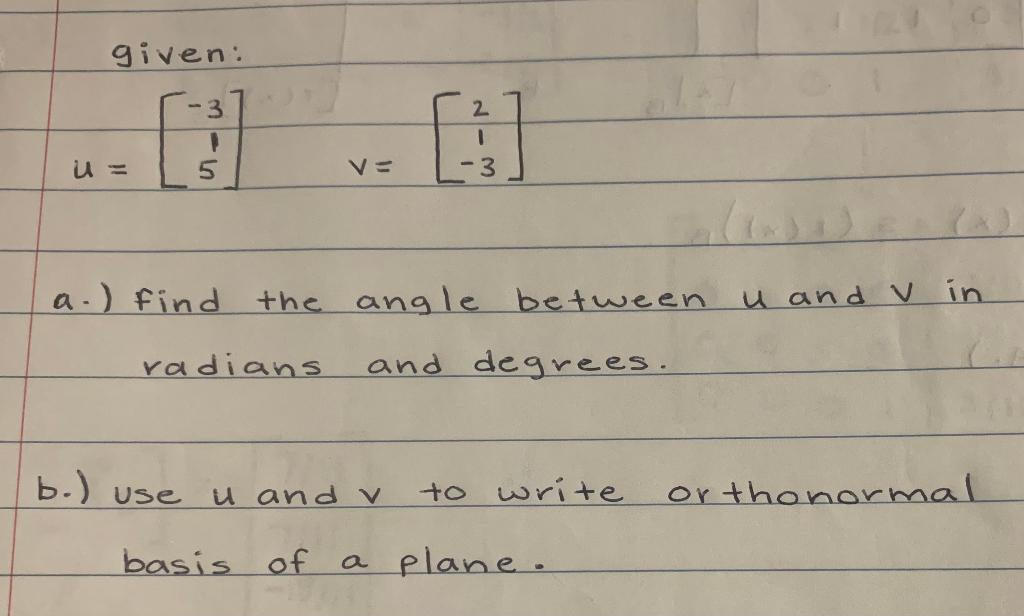 given:
u = [-3 1 5] v = [2 1 -3]
a.) find the angle between u and v in
radians and degrees.
b.) use u and v to write orthonormal
basis of a plane.